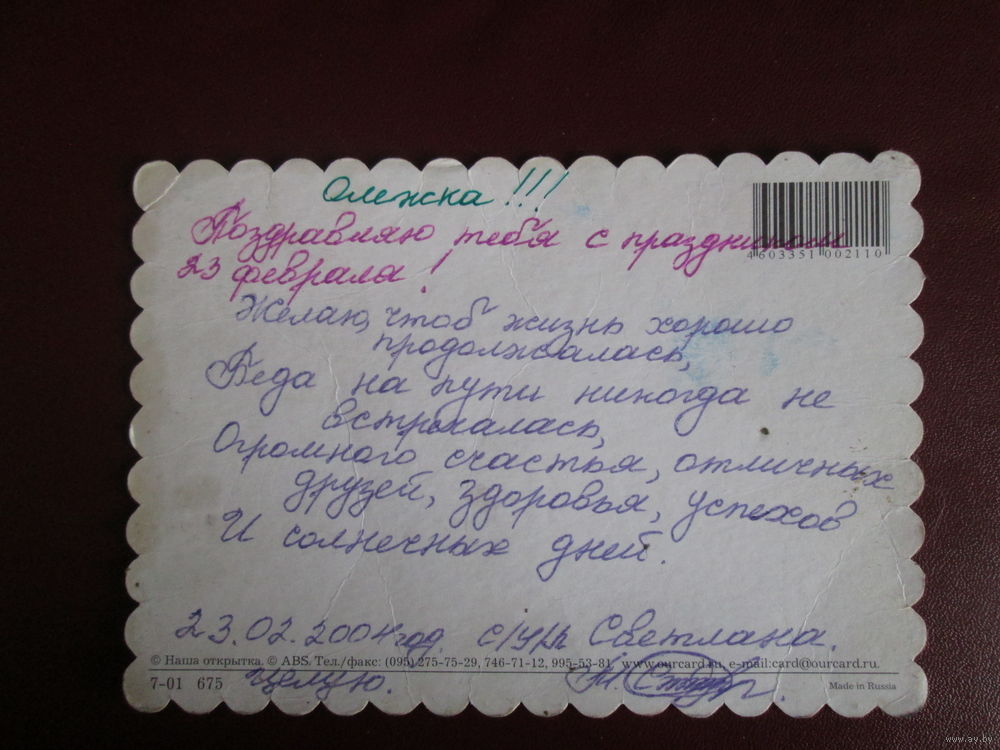 Олежка!!!
Поздравляю тебя с праздником
23 февраля!
4 603351 002110
Желаю, чтоб жизнь хорошо
продолжалась,
Беда на пути никогда не
встречалась,
Огромного счастья, отличных
друзей, здоровья, успехов
И солнечных дней.
23.02.2004 год. с/ув. Светлана.
© Наша открытка. © ABS. Тел./факс: (095) 275-75-29, 746-71-12, 995-53-81 www.ourcard.ru, e-mail:card@ourcard.ru.
7-01 675 Целую. Made in Russia
www.ay.by